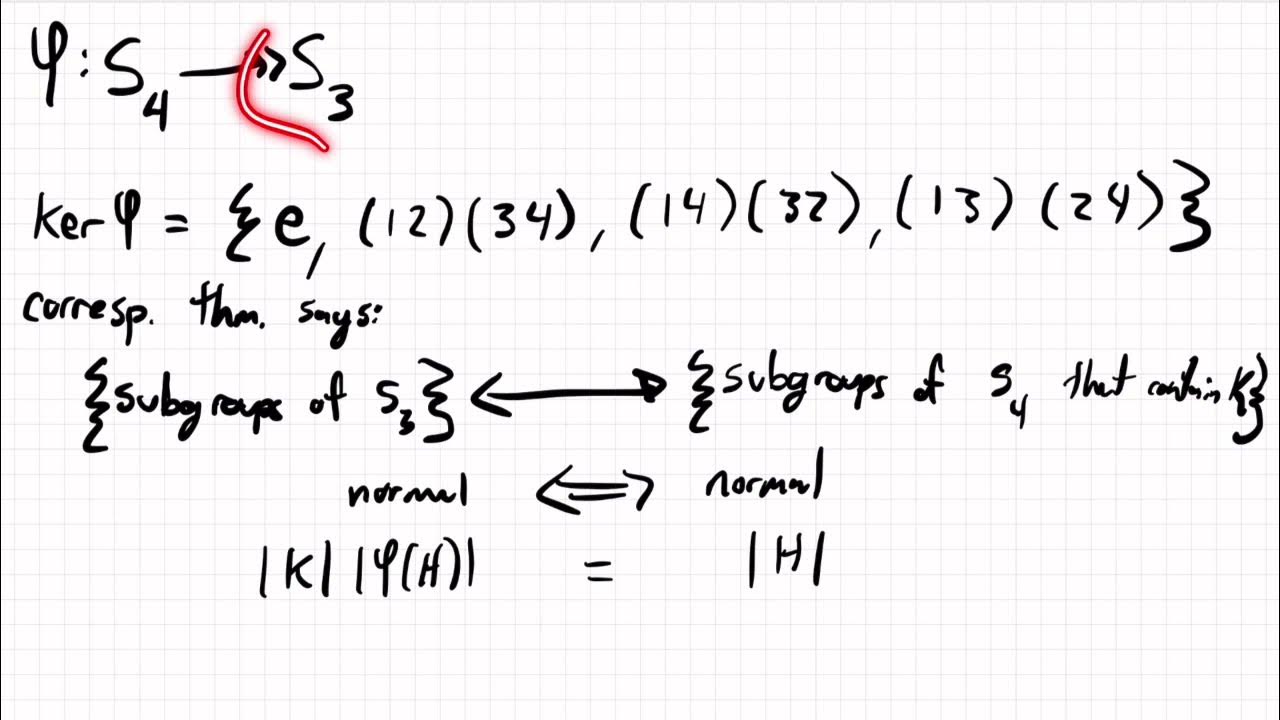 φ: S₄ ↠ S₃
Ker φ = {e, (12)(34), (14)(32), (13)(24)}
corresp. thm. says:
{subgroups of S₃} ↔ {subgroups of S₄ that contain K}
normal ⟺ normal
|K| |φ(H)| = |H|